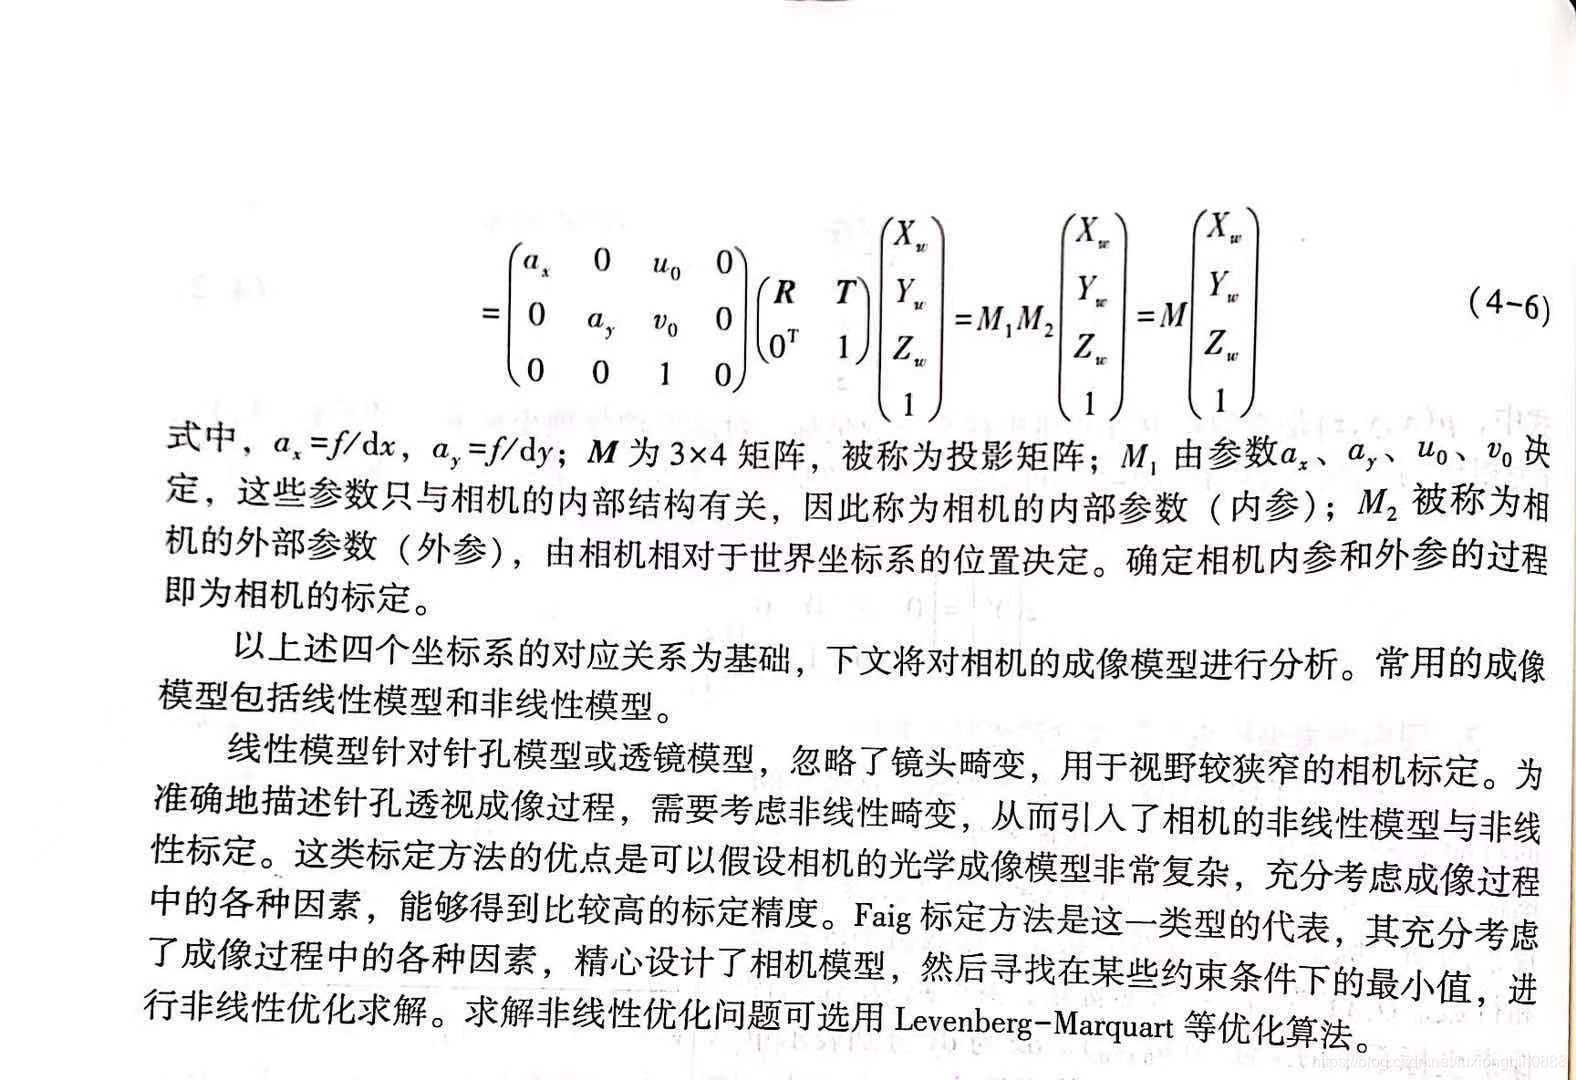 = (a_x 0 u_0 0; 0 a_y v_0 0; 0 0 1 0) (R T; 0^T 1) (X_w; Y_w; Z_w; 1) = M_1 M_2 (X_w; Y_w; Z_w; 1) = M (X_w; Y_w; Z_w; 1) (4-6)
式中，a_x=f/dx，a_y=f/dy；M 为 3×4 矩阵，被称为投影矩阵；M_1 由参数a_x、a_y、u_0、v_0 决
定，这些参数只与相机的内部结构有关，因此称为相机的内部参数（内参）；M_2 被称为相
机的外部参数（外参），由相机相对于世界坐标系的位置决定。确定相机内参和外参的过程
即为相机的标定。
以上述四个坐标系的对应关系为基础，下文将对相机的成像模型进行分析。常用的成像
模型包括线性模型和非线性模型。
线性模型针对针孔模型或透镜模型，忽略了镜头畸变，用于视野较狭窄的相机标定。为
准确地描述针孔透视成像过程，需要考虑非线性畸变，从而引入了相机的非线性模型与非线
性标定。这类标定方法的优点是可以假设相机的光学成像模型非常复杂，充分考虑成像过程
中的各种因素，能够得到比较高的标定精度。Faig 标定方法是这一类型的代表，其充分考虑
了成像过程中的各种因素，精心设计了相机模型，然后寻找在某些约束条件下的最小值，进
行非线性优化求解。求解非线性优化问题可选用 Levenberg-Marquart 等优化算法。